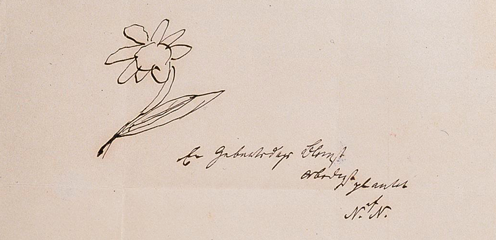 En Geburtsdags Blomst
ærbødigst plantet
N. N.